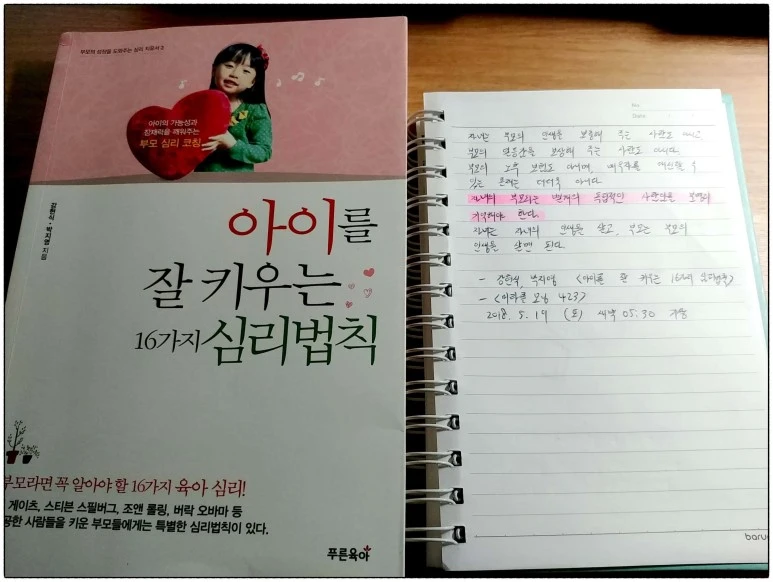 부모의 성장을 도와주는 심리 치유서 2
아이의 가능성과
잠재력을 깨워주는
부모 심리 코칭
강현식·박지영 지음
아이를
잘 키우는
16가지 심리법칙
부모라면 꼭 알아야 할 16가지 육아 심리!
게이츠, 스티븐 스필버그, 조앤 롤링, 버락 오바마 등
공한 사람들을 키운 부모들에게는 특별한 심리법칙이 있다.
푸른육아
No.
Date
자녀는 부모의 인생을 보충해 주는 사람도 아니고
부모의 열등감을 보상해 주는 사람도 아니다.
부모의 노후 보험도 아니며, 배우자를 대신할 수
있는 존재는 더더욱 아니다.
자녀와 부모라는 별개의 독립적인 사람임을 분명히
기억해야 한다.
자녀는 자녀의 인생을 살고, 부모는 부모의
인생을 살면 된다.
- 강현식, 박지영 <아이를 잘 키우는 16가지 심리법칙>
- <미라클 모닝 423>
2018. 5. 19 (토) 새벽 05:30 기상